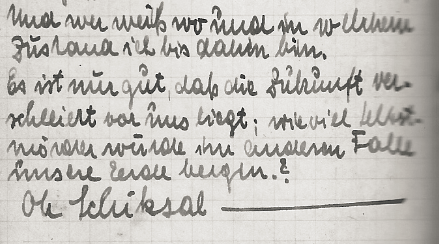 Und wer weiß wo und in welchem
Zustand ich bis dahin bin.
Es ist nur gut, daß die Zukunft ver-
schleiert vor uns liegt; wie viel Selbst-
mörder würde im anderen Falle
unsere Erde bergen.?
Oh Schiksal